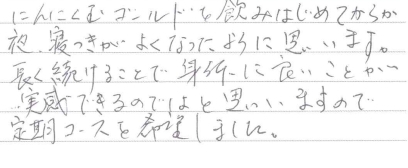 にんにくむゴールドを飲みはじめてからか
夜、寝つきがよくなったように思います。
長く続けることで身体に良いことが
実感できるのではと思いますので
定期コースを希望しました。